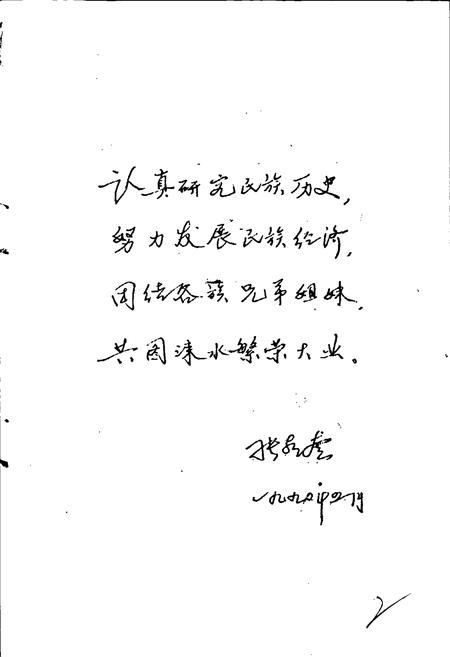 认真研究民族历史，
努力发展民族经济，
团结各族兄弟姐妹，
共图涞水繁荣大业。
张
一九九〇年四月
2